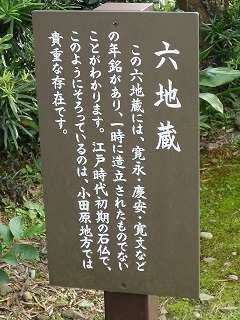 六地蔵
この六地蔵には、寛永・慶安・寛文など
の年銘があり、一時に造立されたものでない
ことがわかります。江戸時代初期の石仏で、
このようにそろっているのは、小田原地方では
貴重な存在です。